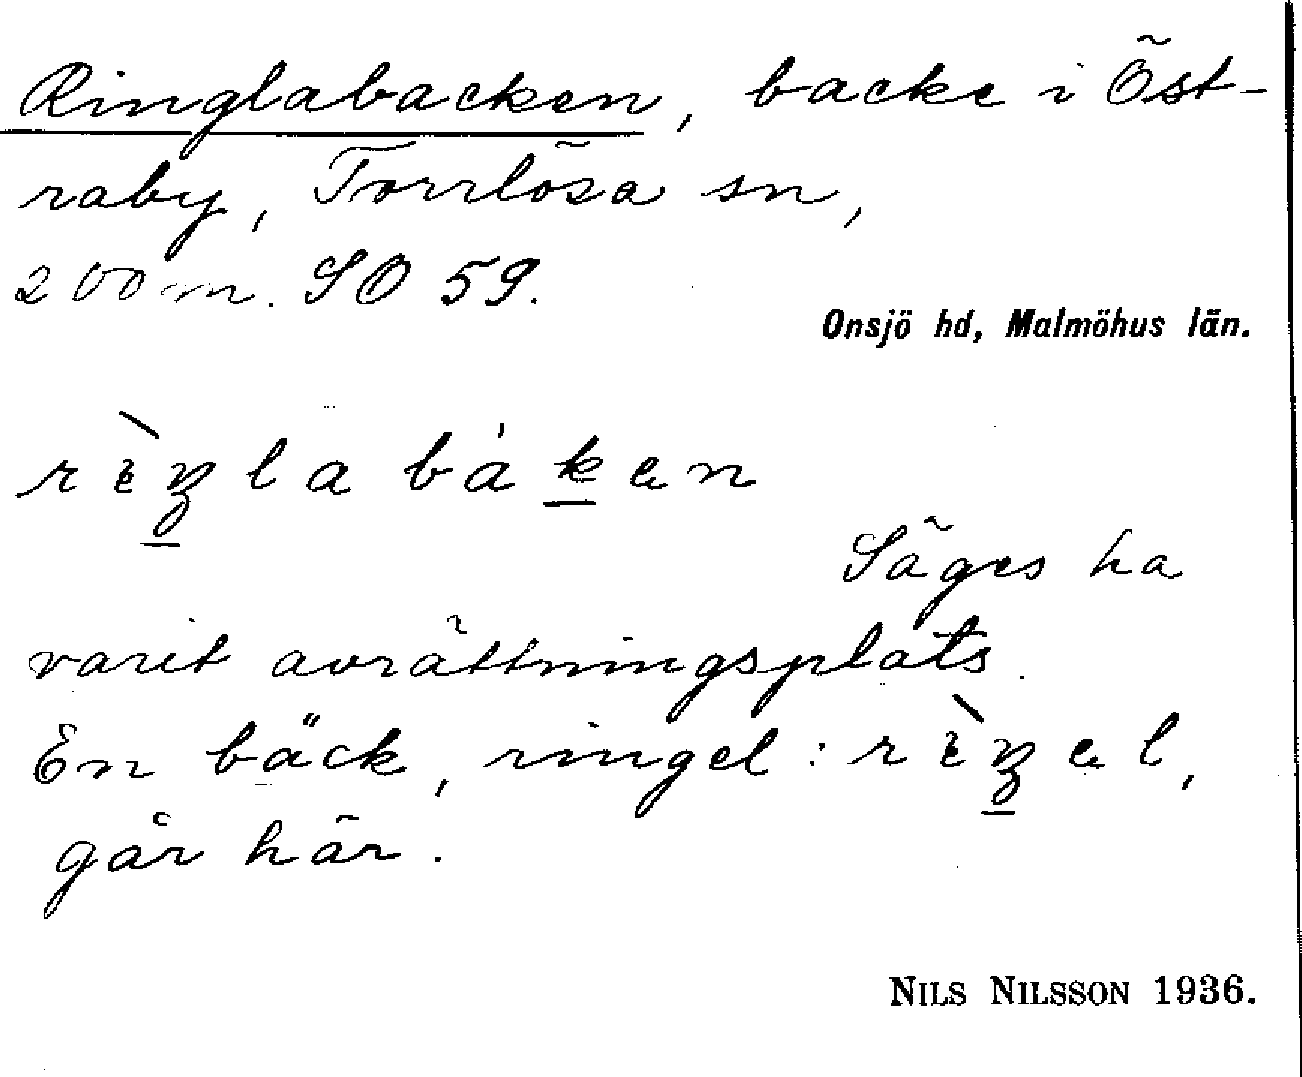 Ringlabacken, backe i Öst-
raby, Torrlösa sn,
200 m. SO 59.
Onsjö hd, Malmöhus län.
Säges ha
varit avrättningsplats.
En bäck, ringel:
går här.
NILS NILSSON 1936.